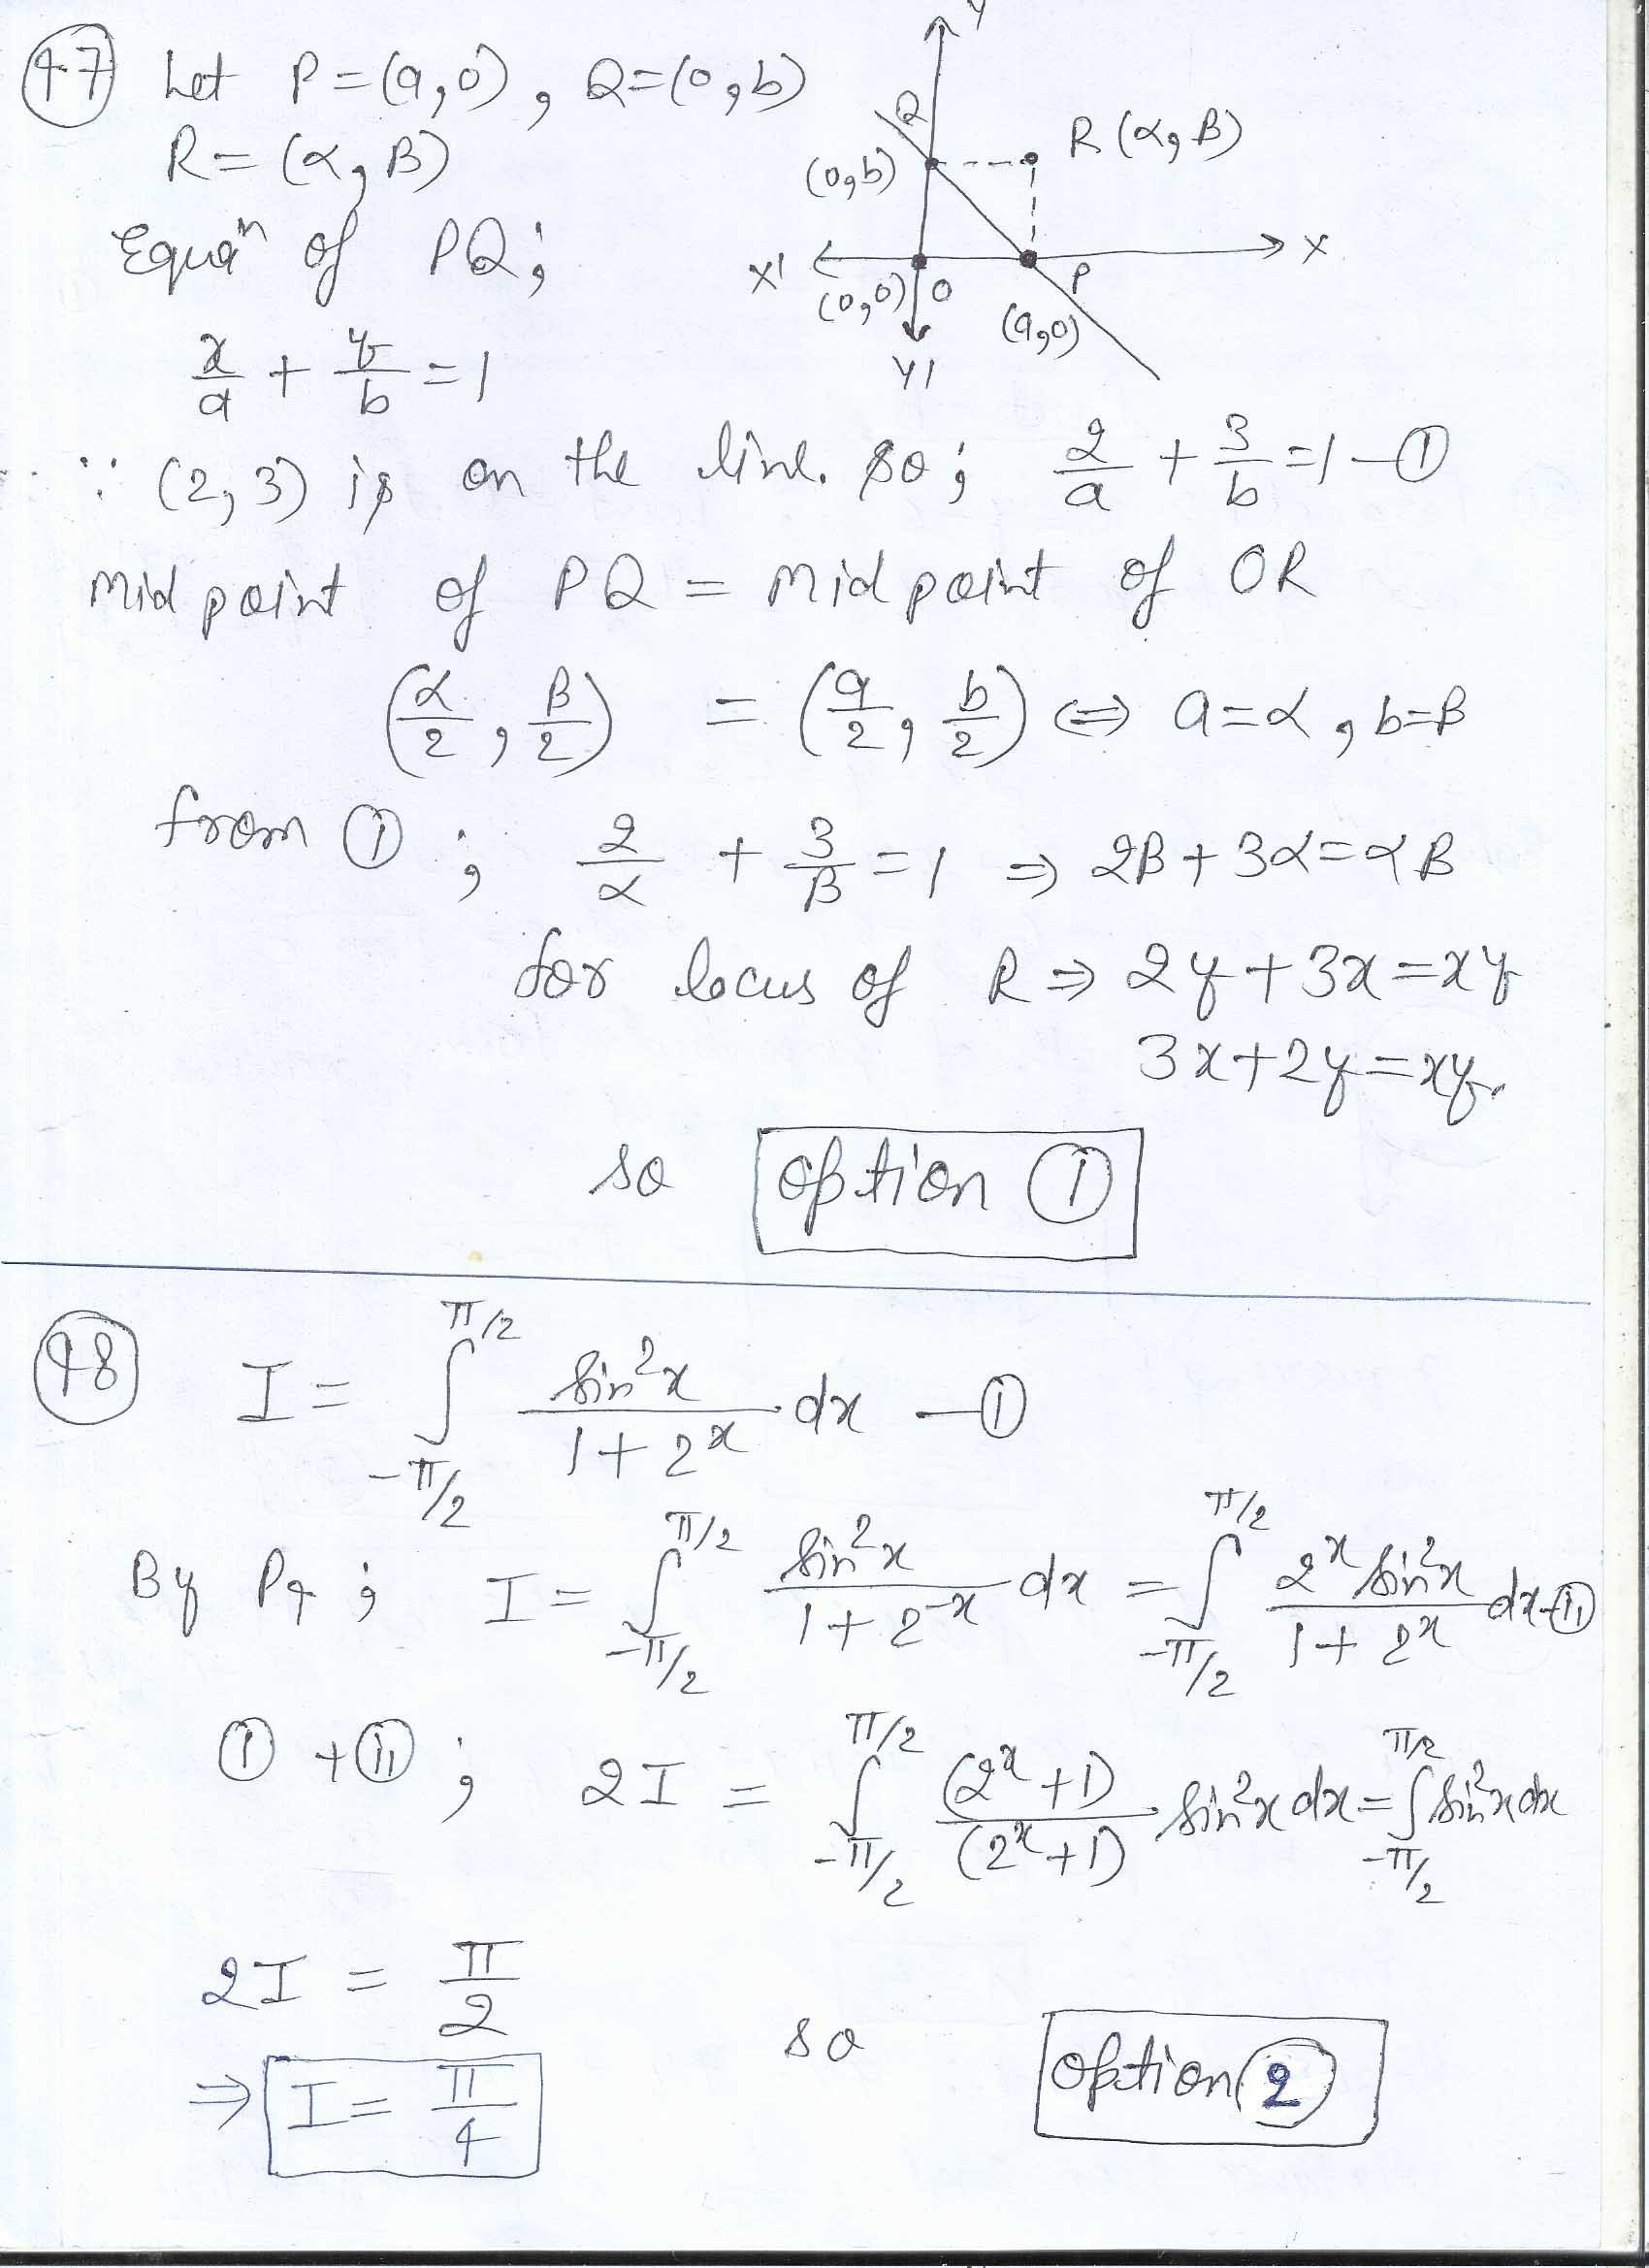 47 Let P=(a,0), Q=(0,b)
R=(α,β)
Equaⁿ of PQ;
x/a + y/b = 1
∵ (2,3) is on the line. so; 2/a + 3/b = 1 —①
Mid point of PQ = Mid point of OR
(α/2, β/2) = (a/2, b/2) ⇔ a=α, b=β
from ①; 2/α + 3/β = 1 ⇒ 2β+3α=αβ
for locus of R ⇒ 2y+3x=xy
3x+2y=xy.
so option ①
Y
Q
R(α,β)
(0,b)
X' X
(0,0) O P
(a,0)
Y'
48 I = ∫_{-π/2}^{π/2} sin²x/(1+2ˣ) dx —①
By P4; I = ∫_{-π/2}^{π/2} sin²x/(1+2⁻ˣ) dx = ∫_{-π/2}^{π/2} 2ˣ sin²x/(1+2ˣ) dx —⑪
① + ⑪; 2I = ∫_{-π/2}^{π/2} (2ˣ+1)/(2ˣ+1) sin²x dx = ∫_{-π/2}^{π/2} sin²x dx
2I = π/2
⇒ I = π/4 so option ②